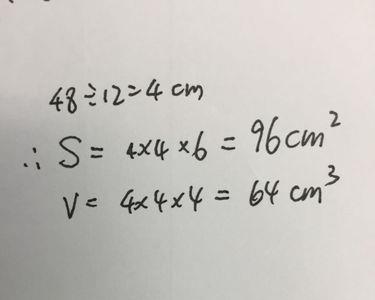 48÷12=4 cm
∴ S = 4×4×6 = 96cm²
V = 4×4×4 = 64 cm³